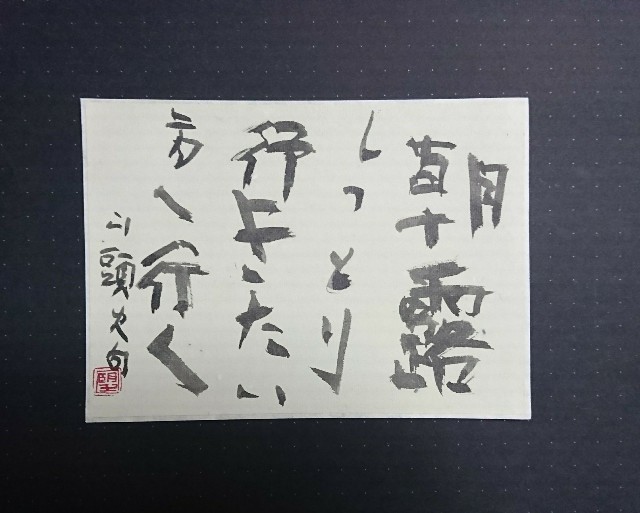 朝露
しっとり
行きたい
方へ行く
山頭火句